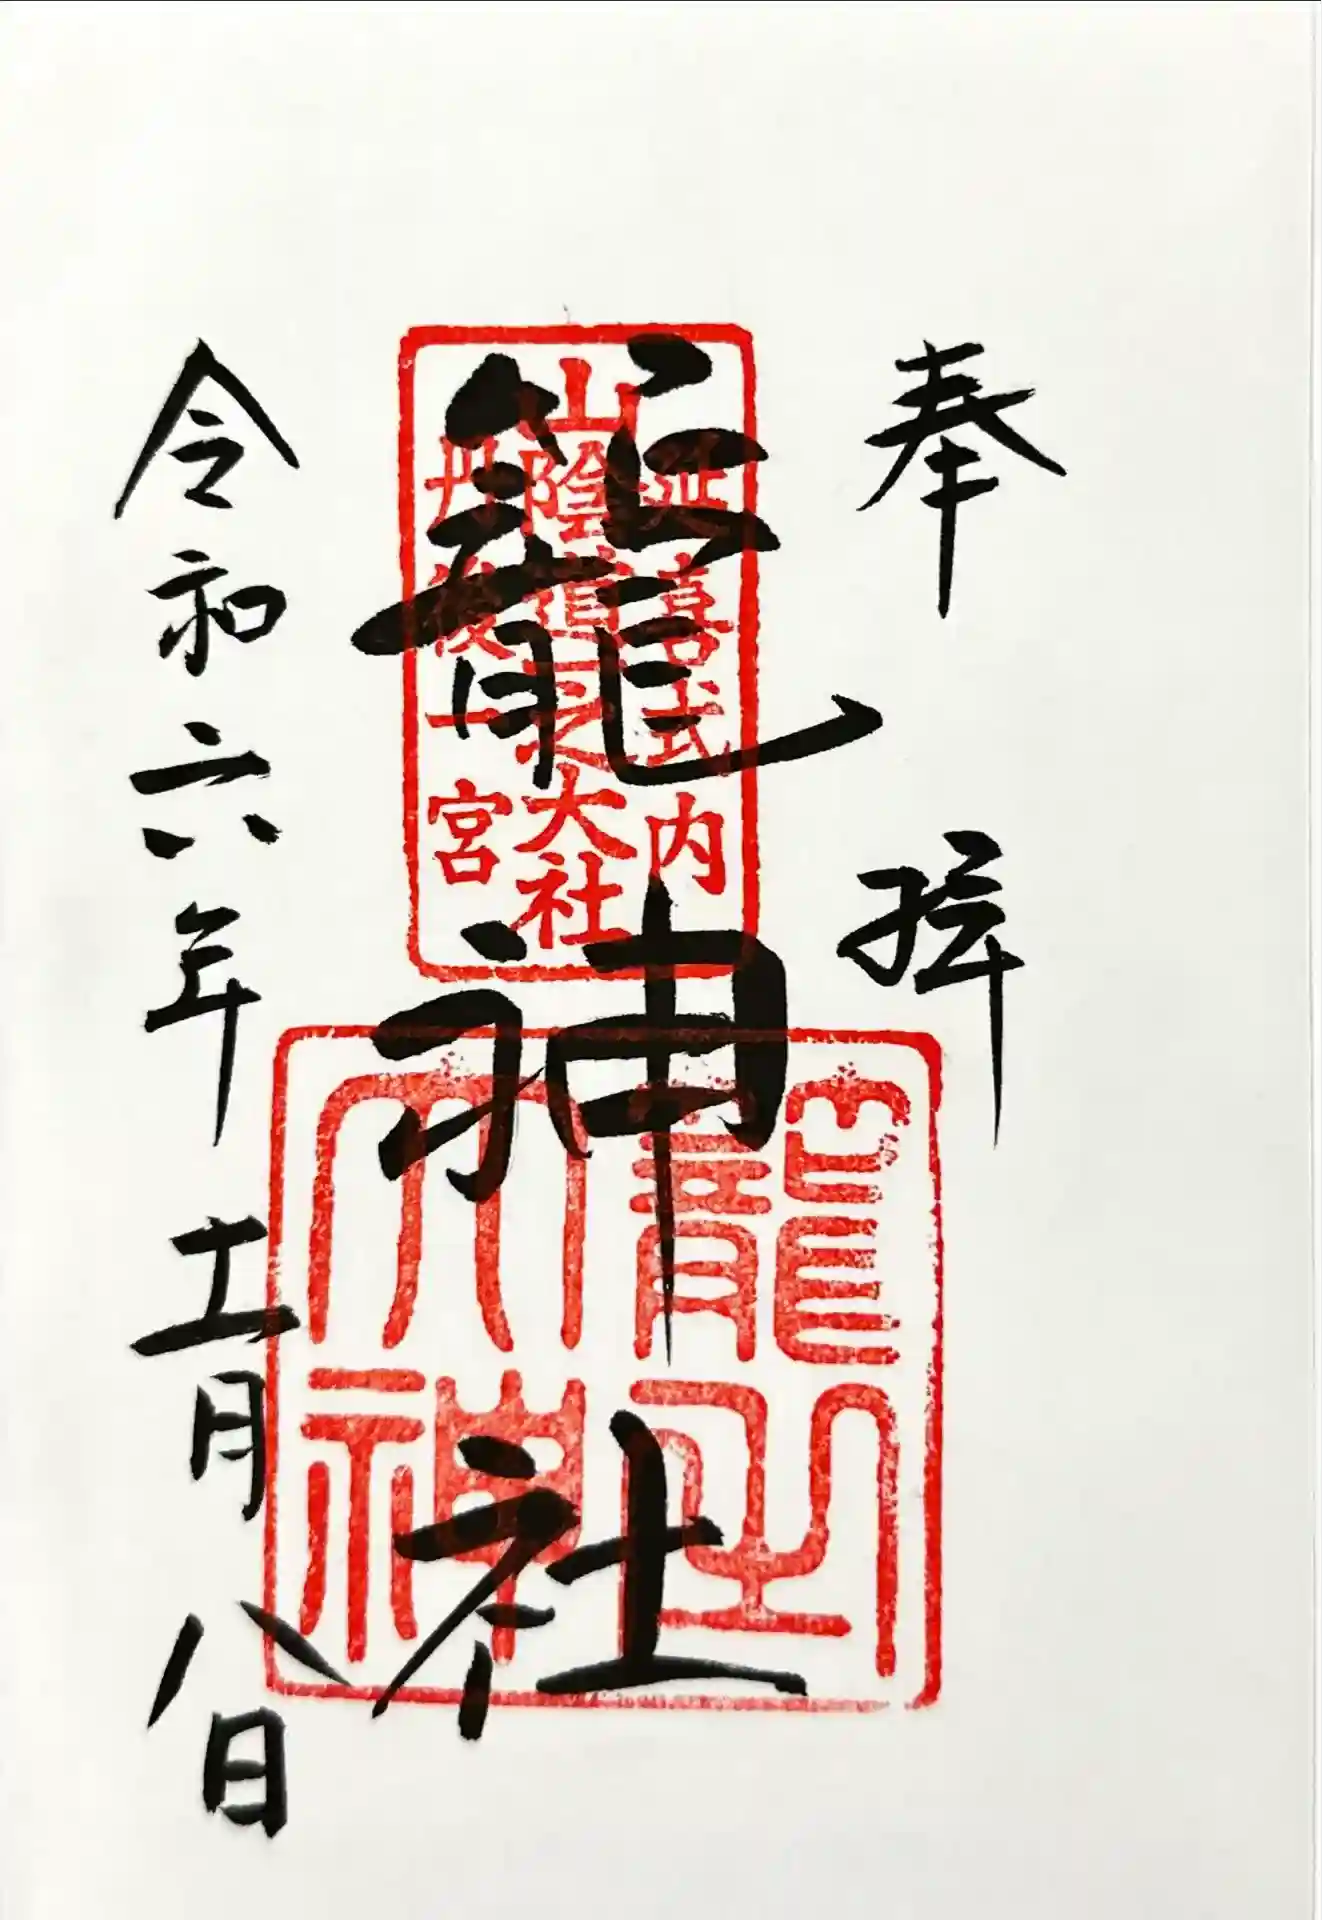 奉拝
延喜式内
山陰道一之大社
丹後一宮
籠神社
大神
令和六年十一月八日